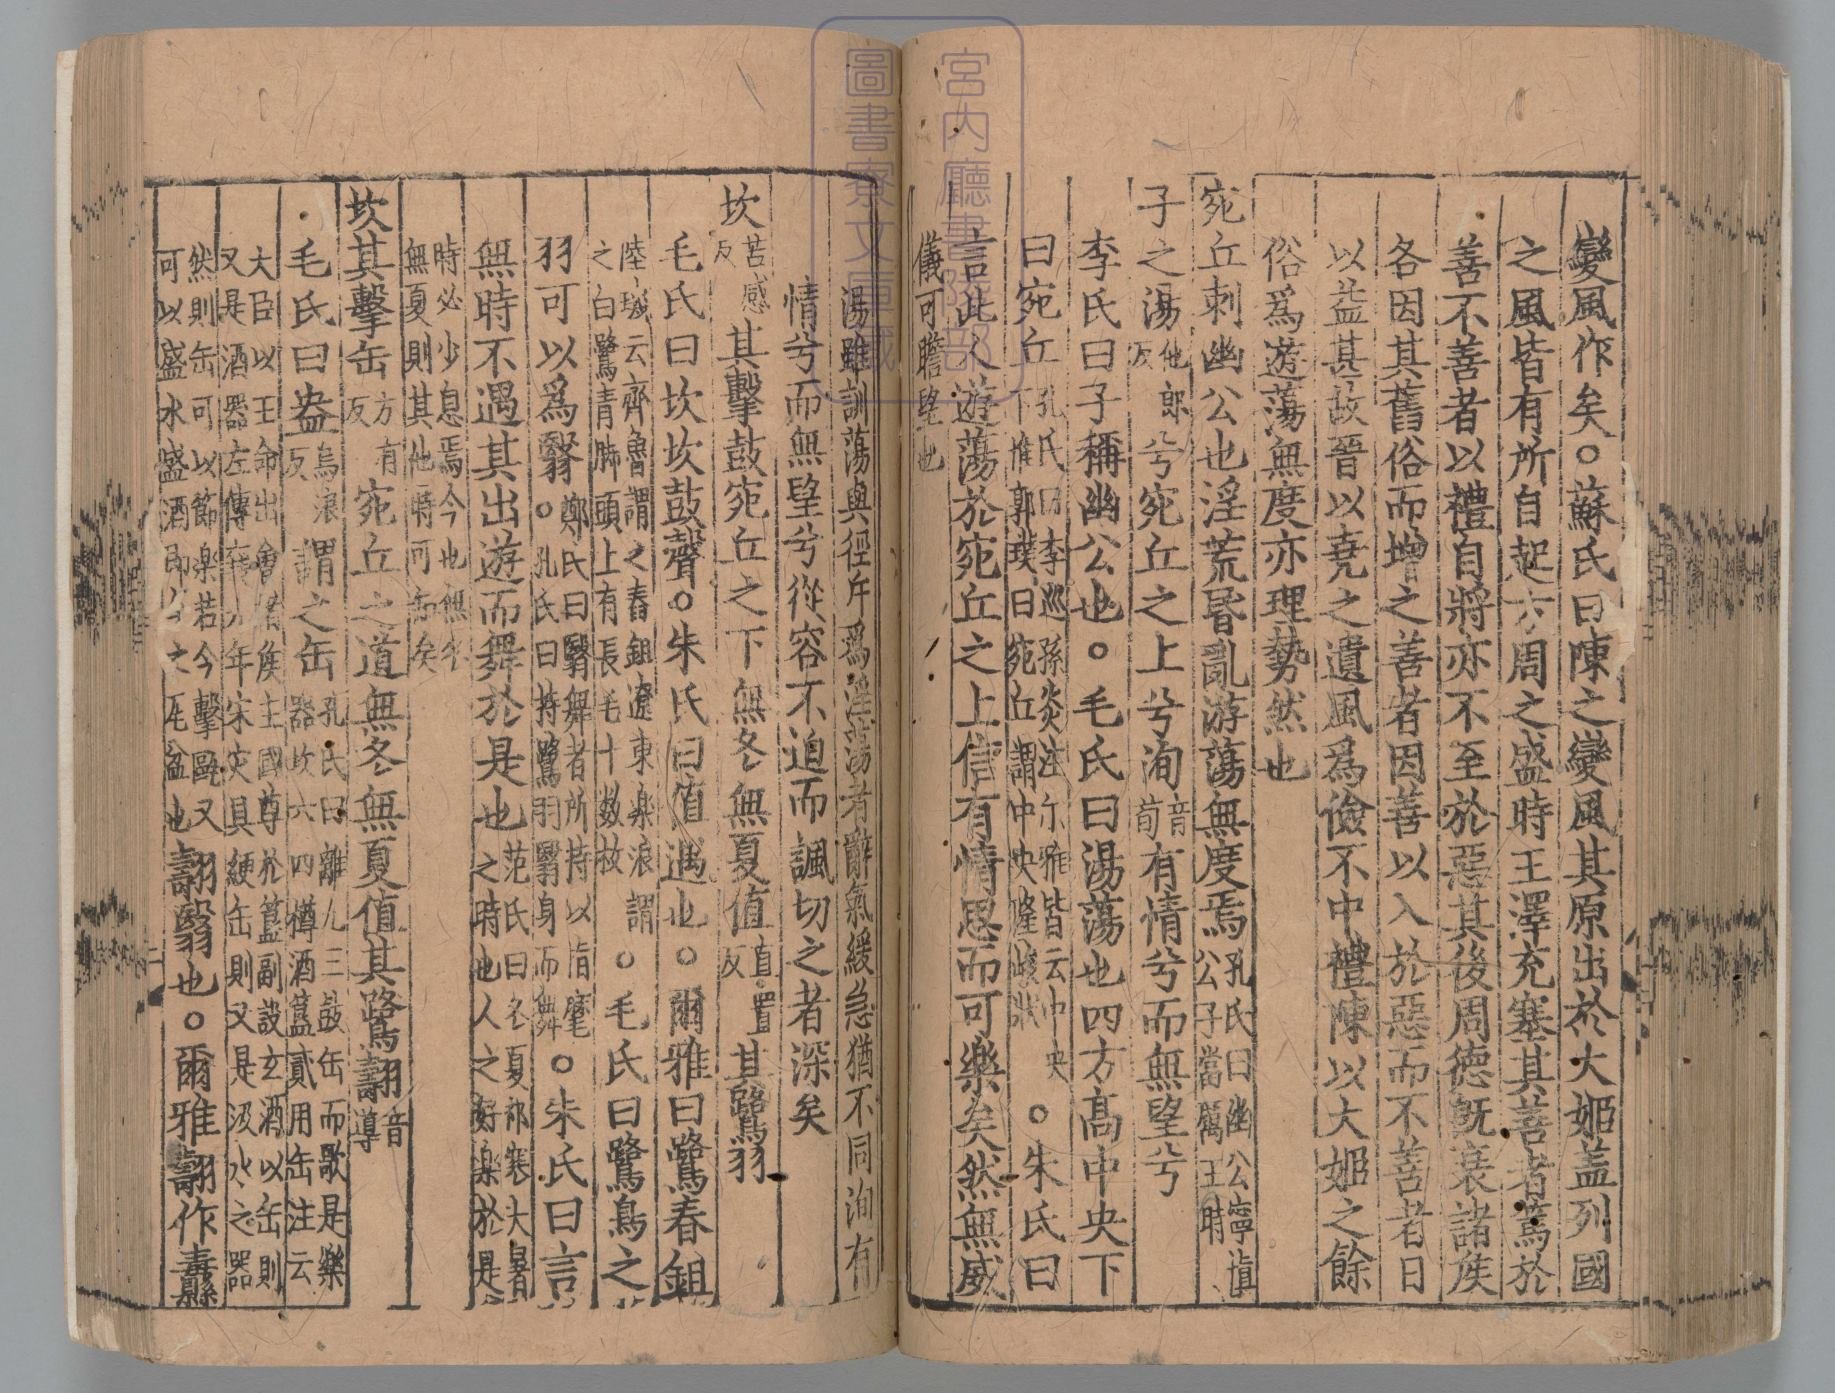 變風作矣○蘇氏曰陳之變風其原出於大姬蓋列國
之風皆有所自起方周之盛時王澤充塞其善者篤於
善不善者以禮自將亦不至於惡其後周德旣衰諸侯
各因其舊俗而增之善者因善以入於惡而不善者日
以益甚故晉以堯之遺風爲儉不中禮陳以大姬之餘
俗爲遊蕩無度亦理勢然也
宛丘刺幽公也淫荒昏亂游蕩無度焉孔氏曰幽公寧愼公子當厲王時
子之湯他郎反兮宛丘之上兮洵音荀有情兮而無望兮
李氏曰子稱幽公也○毛氏曰湯蕩也四方高中央下
曰宛丘孔氏曰李巡孫炎注尓雅皆云中央下惟郭璞曰宛丘謂中央隆峻狀○朱氏曰
言此人遊蕩於宛丘之上信有情思而可樂矣然無威
儀可瞻望也
湯雖訓蕩與徑斥爲淫蕩者辭氣緩急猶不同洵有
情兮而無望兮從容不迫而諷切之者深矣
坎苦感反其擊鼓宛丘之下無冬無夏值直置反其鷺羽
毛氏曰坎坎鼓聲○朱氏曰值遇也○爾雅曰鷺舂鉏
陸璣云齊魯謂之舂鉏遼東樂浪謂之白鷺青脚頭上有長毛十數枚○毛氏曰鷺鳥之
羽可以爲翳○鄭氏曰翳舞者所持以指麾孔氏曰持鷺羽翳身而舞○朱氏曰言
無時不遇其出遊而舞於是也范氏曰冬夏祁寒大暑之時也人之好樂於是
時必少息焉今也無冬無夏則其他時可知矣
坎其擊缶方有反宛丘之道無冬無夏值其鷺翿音導
毛氏曰盎烏浪反謂之缶孔氏曰離九三鼓缶而歌是樂器坎六四樽酒簋貳用缶注云
大臣以王命出會諸侯主國尊於簋副設玄酒以缶則又是酒器左傳襄九年宋灾具綆缶則又是汲水之器
然則缶可以節樂若今擊甌又可以盛水盛酒即今之瓦盆也翿翳也○爾雅翿作纛
宮內廳書陵部
圖書寮文庫藏